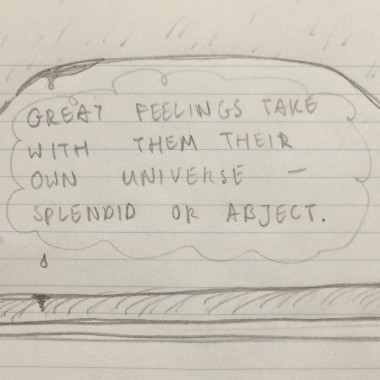 GREAT FEELINGS TAKE
WITH THEM THEIR
OWN UNIVERSE –
SPLENDID OR ABJECT.